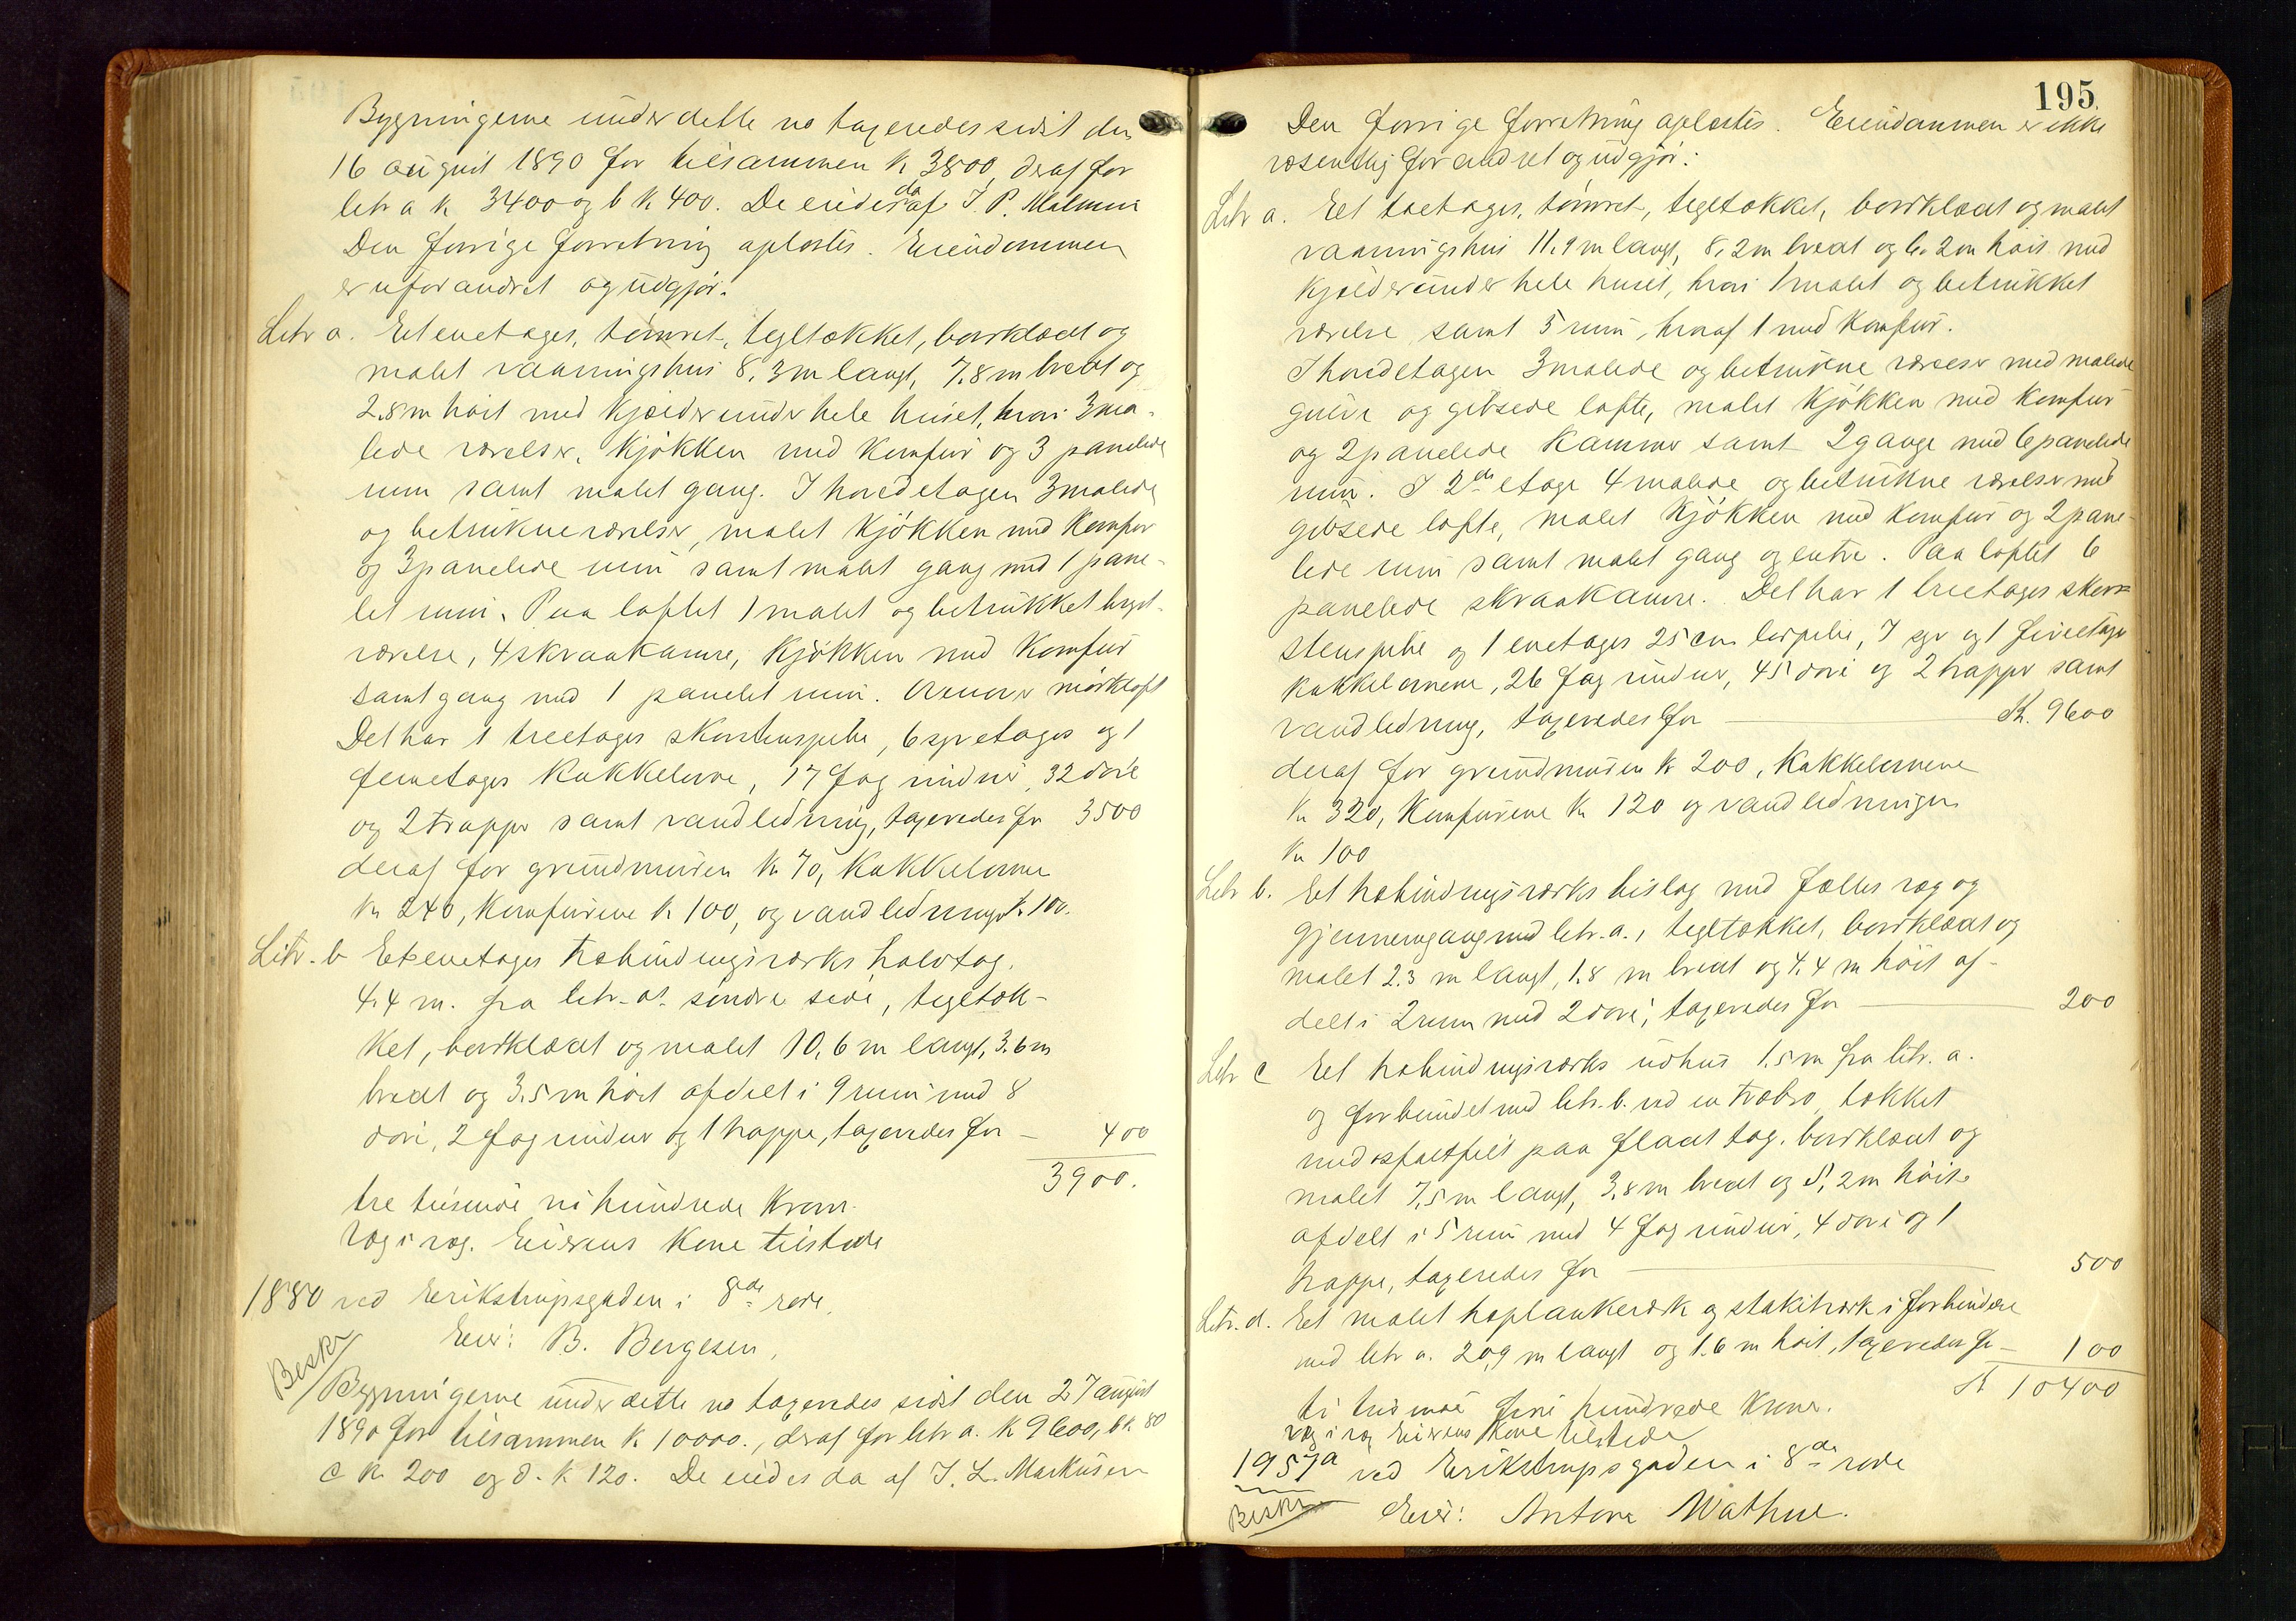 Bygningerne under dette no taxeredes sidst den
16 august 1890 for tilsammen k 3800, deraf for
litr a k 3400 og b k 400. De eiedes da af J. P. Malmin
Den forrige forretning oplæstes. Eiendommen
er uforandret og udgjør:
Litr a. Et enetages, tømret, tegltækket, bordklædt og
malet vaaningshus 8,3 m langt, 7,8 m bredt og
2.8 m høit med kjælder under hele huset, hvori 3 ma-
lede værelser, kjøkken med komfur og 3 panelede
rum samt malet gang. I hovedetagen 3 malede
og betrukne værelser, malet kjøkken med komfur
og 3 panelede rum samt malet gang med 1 pane-
let rum. Paa loftet 1 malet og betrukket kvist-
værelse, 4 skraakamre, kjøkken med komfur
samt gang med 1 panelet rum. Øverst mørkloft
Det har 1 treetages skorstenspibe, 6 syvetages og 1
femetages kakkelovne, 17 fag vinduer, 32 døre
og 2 trapper samt vandledning, taxeredes for 3500
deraf for grundmuren k 70, kakkelovnene
kr 240, komfurene k 100, og vandledningen k. 100.
Litr. b Et enetages træbindingsværks halvtag,
4,4 m. fra litr. a's søndre side, tegltæk-
ket, bordklædt og malet 10,6 m langt, 3.6 m
bredt og 3.5 m høit afdelt i 9 rum med 8
døre, 2 fag vinduer og 1 trappe, taxeredes for — 400
3900.
tre tusinde ni hundrede kroner.
Væg i væg. Eierens kone tilstede
1880 ved Erikstrupsgaden i 8de rode.
Eier: B. Bergesen,
Beskr
Bygningerne under dette no taxeredes sidst den 27 august
1890 for tilsammen k 10000., deraf for litr a. k 9600, b k. 80
c k. 200 og d. k 120. De eiedes da af J. L. Markusen
195.
Den forrige forretning oplæstes. Eiendommen er ikke
væsentlig forandret og udgjør:
Litr a. Et toetages, tømret, tegltækket, bordklædt og malet
vaaningshus 11,9 m langt, 8,2 m bredt og 6.2 m høit med
kjælder under hele huset, hvori 1 malet og betrukket
værelse samt 5 rum, hvoraf 1 med komfur.
I hovedetagen 3 malede og betrukne værelser med malede
gulve og gibsede lofte, malet kjøkken med komfur
og 2 panelede kammer samt 2 gange med 6 panelede
rum. I 2den etage 4 malede og betrukne værelser med
gibsede lofte, malet kjøkken med komfur og 2 pane-
lede rum samt malet gang og entre. Paa loftet 6
panelede skraakamre. Det har 1 treetages skor-
stenspibe og 1 enetages 25 cm lerpibe, 7 syv og 1 fireetages
kakkelovnene, 26 fag vinduer, 45 døre og 2 trapper samt
vandledning, taxeredes for — K. 9600
deraf for grundmuren k 200, kakkelovnene
kr 320, komfurene kr 120 og vandledningen
kr 100
Litr b. Et træbindingsværks bislag med fælles væg og
gjennemgang med litr. a., tegltækket, bordklædt og
malet 2.3 m langt, 1.8 m bredt og 4,4 m høit af-
delt i 2 rum med 2 døre, taxeredes for — 200
Litr c Et træbindingsværks udhus 1.5 m fra litr. a.
og forbundet med litr. b. ved en træbro, tækket
med asfaltfilt paa fladt tag, bordklædt og
malet 7,5 m langt, 3,8 m bredt og 5,2 m høit.
afdelt i 5 rum med 4 fag vinduer, 4 døre og 1
trappe, taxeredes for — 500
Litr. d. Et malet træplankeværk og stakitværk i forbindelse
med litr a. 20,9 m langt og 1.6 m høit, taxeredes for — 100
K 10400
ti tusinde fire hundrede kroner.
væg i væg Eierens kone tilstede
1957a ved Erikstrupsgaden i 8de rode
Beskr Eier: Antone Wathne.